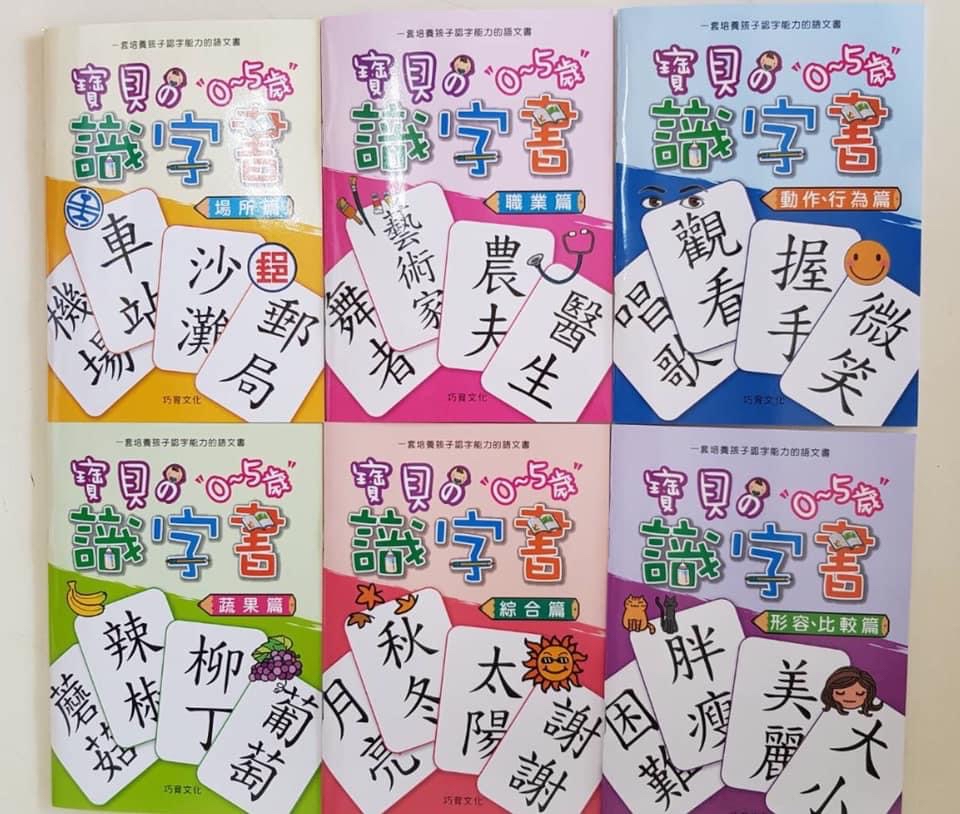 一套培養孩子認字能力的語文書
寶貝の"0~5歲"
識字書
場所篇
機場
車站
沙灘
郵局
巧育文化
一套培養孩子認字能力的語文書
寶貝の"0~5歲"
識字書
職業篇
舞者
藝術家
農夫
醫生
巧育文化
一套培養孩子認字能力的語文書
寶貝の"0~5歲"
識字書
動作、行為篇
唱歌
觀看
握手
微笑
巧育文化
一套培養孩子認字能力的語文書
寶貝の"0~5歲"
識字書
蔬果篇
蘑菇
辣椒
柳丁
葡萄
巧育文化
一套培養孩子認字能力的語文書
寶貝の"0~5歲"
識字書
綜合篇
月亮
秋冬
太陽
謝謝
巧育文化
一套培養孩子認字能力的語文書
寶貝の"0~5歲"
識字書
形容、比較篇
困難
胖瘦
美麗
大小